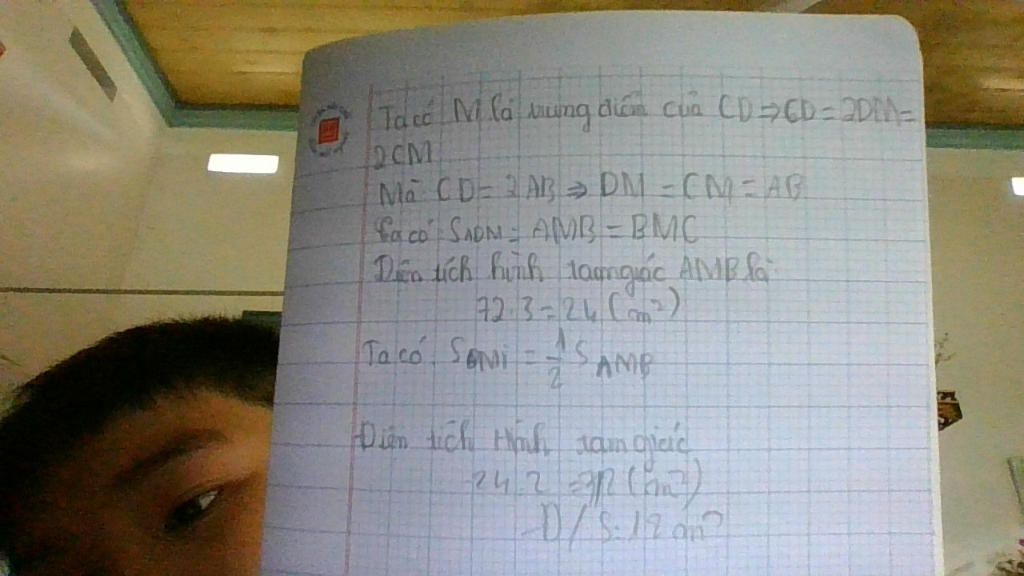 Ta có M là trung điểm của CD ⇒ CD = 2DM =
2CM
Mà CD = 2AB ⇒ DM = CM = AB
Ta có SADM = AMB = BMC
Diện tích hình tam giác AMB là
72 : 3 = 24 (cm²)
Ta có SBMi = 1/2 S AMB
Diện tích Hình tam giác
24 : 2 = 12 (cm²)
Đ/S: 12 cm²